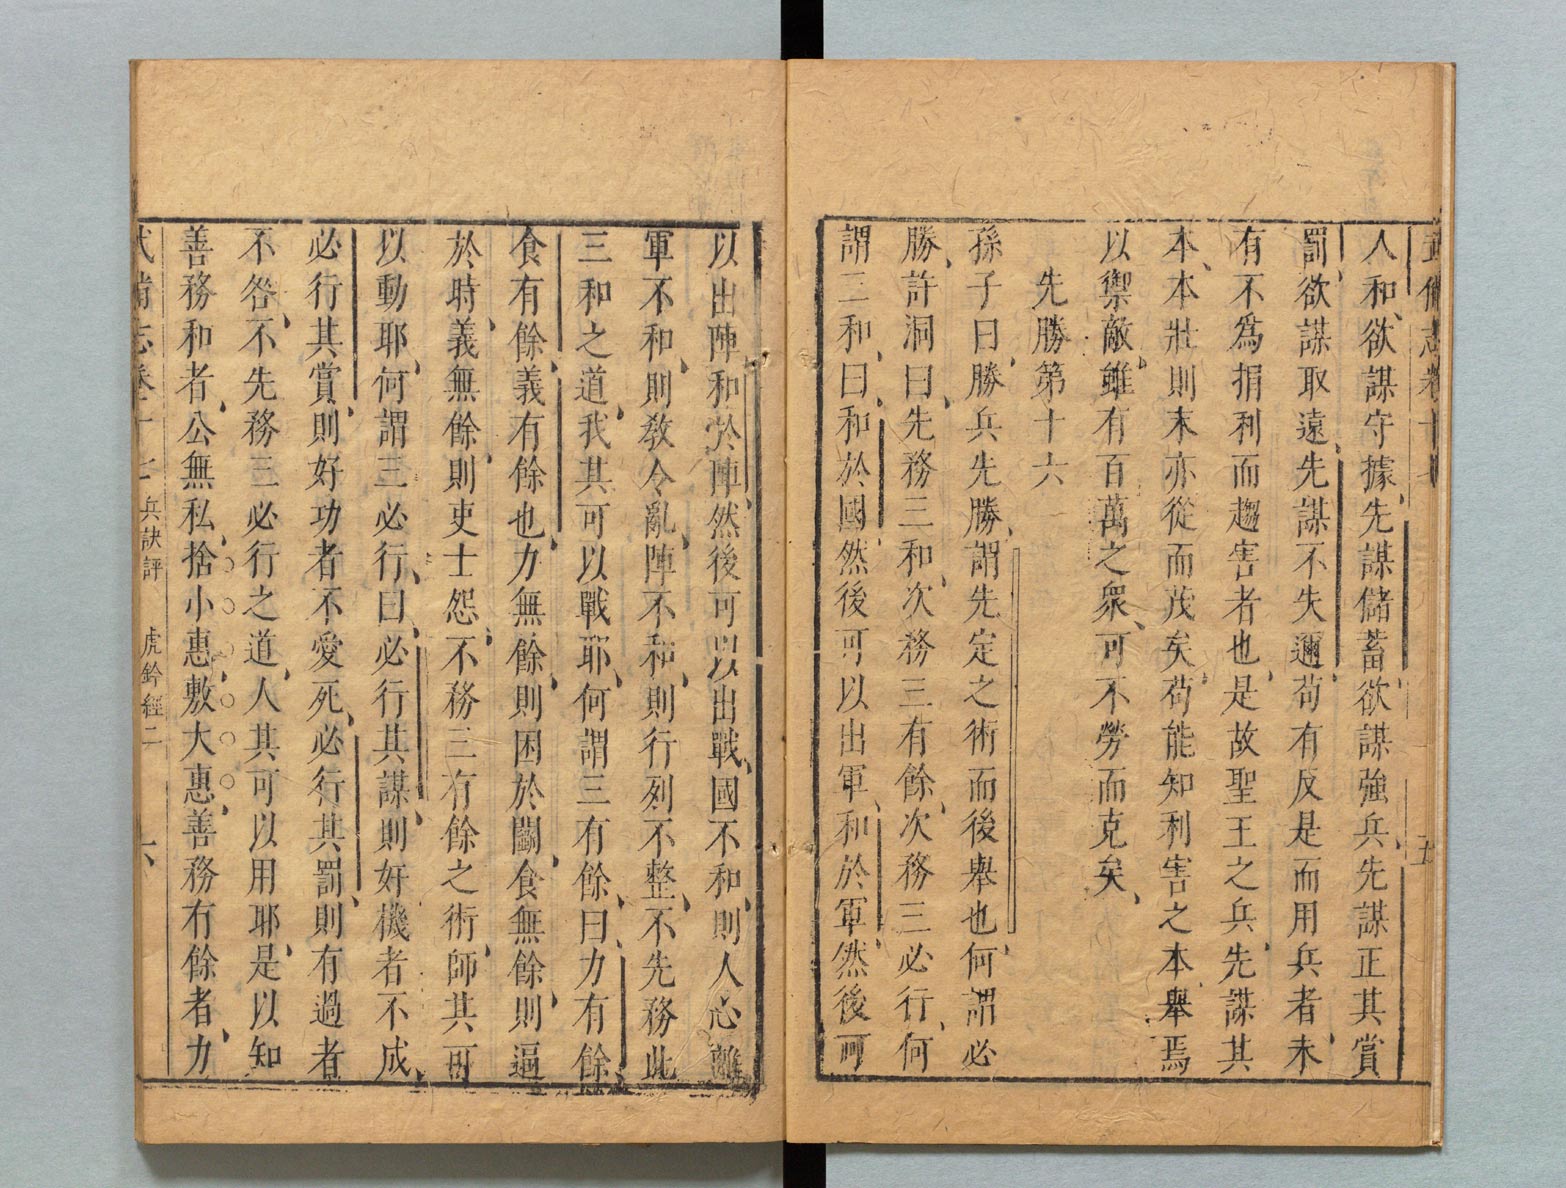 武備志卷十七 五
人和欲謀守據先謀儲蓄欲謀強兵先謀正其賞
罰欲謀取遠先謀不失邇苟有反是而用兵者未
有不爲捐利而趨害者也是故聖王之兵先謀其
本本壯則末亦從而茂矣苟能知利害之本舉焉
以禦敵雖有百萬之衆可不勞而克矣
先勝第十六
孫子曰勝兵先勝謂先定之術而後舉也何謂必
勝許洞曰先務三和次務三有餘次務三必行何
謂三和曰和於國然後可以出軍和於軍然後可
以出陣和於陣然後可以出戰國不和則人心離
軍不和則敎令亂陣不和則行列不整不先務此
三和之道我其可以戰耶何謂三有餘曰力有餘
食有餘義有餘也力無餘則困於鬭食無餘則逼
於時義無餘則吏士怨不務三有餘之術師其可
以動耶何謂三必行曰必行其謀則奸機者不成
必行其賞則好功者不愛死必行其罰則有過者
不咎不先務三必行之道人其可以用耶是以知
善務和者公無私捨小惠敷大惠善務有餘者力
武備志卷十七 兵訣評 虎鈐經二 六